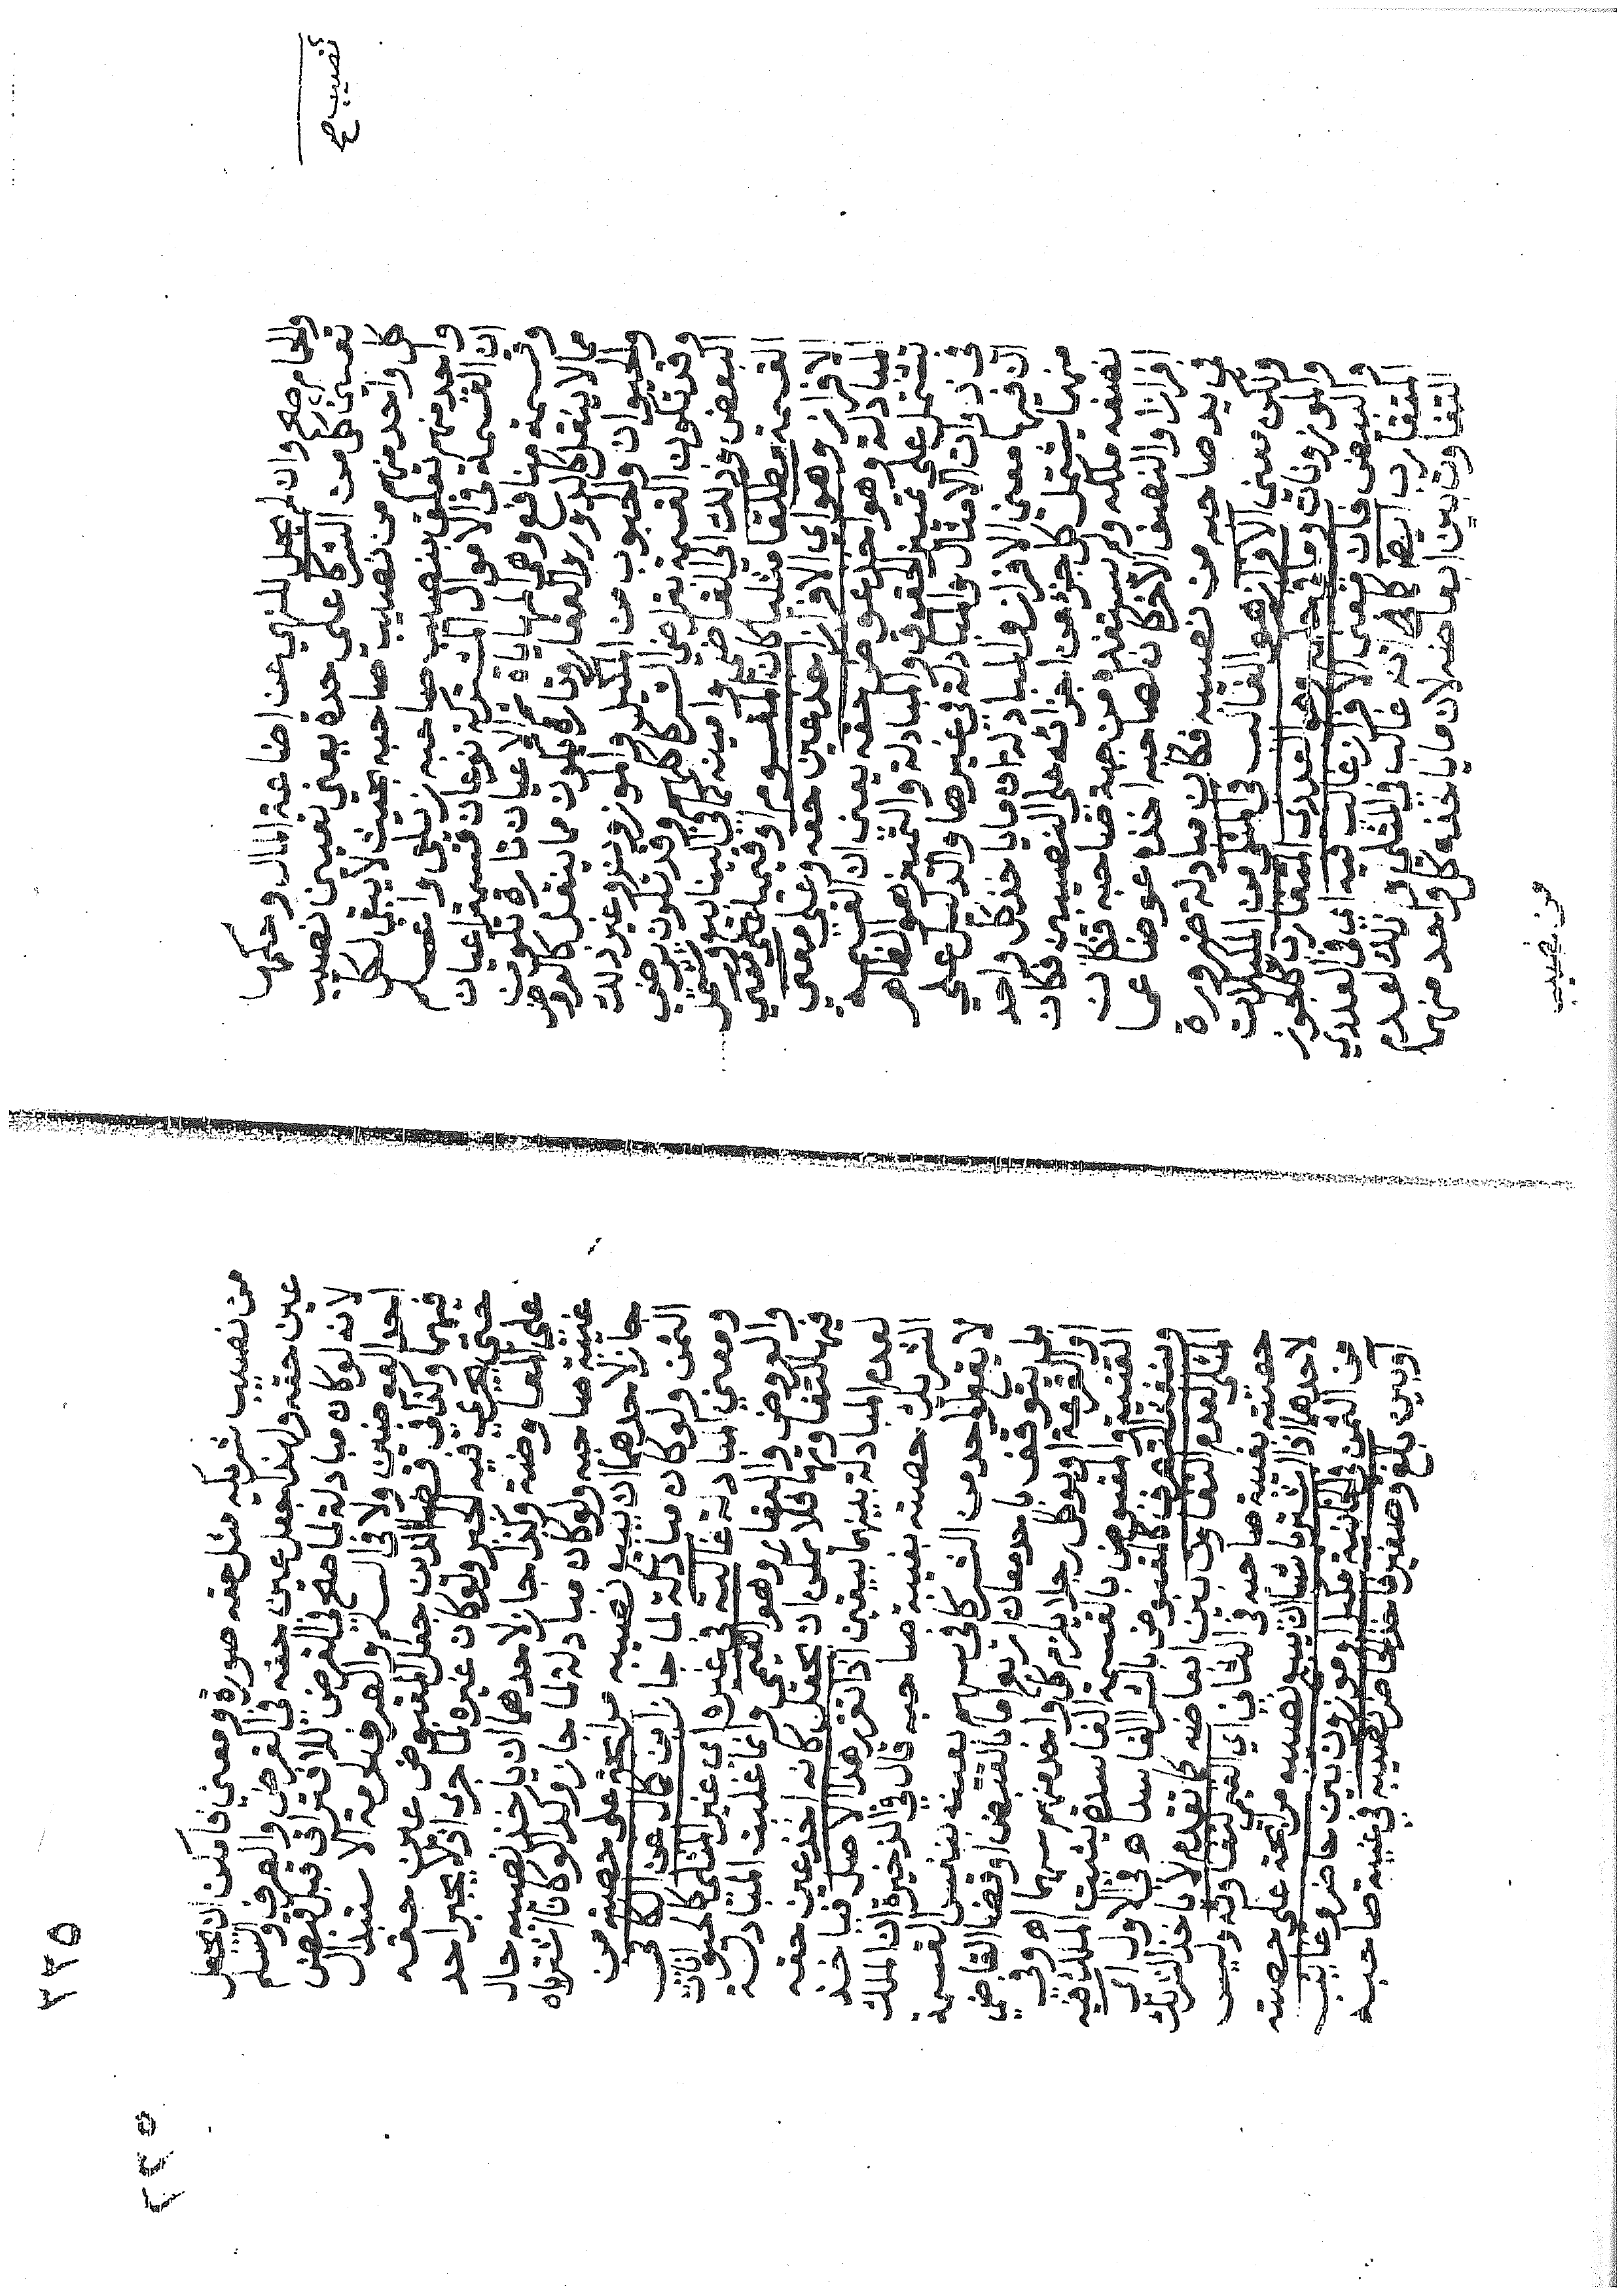 والحمام صح وان لم يحل للنهي عن اضاعة المال وحكمها
نصيب صح
كل من الشركا على حدة يعني تعيين نصيب
كل واحد منهم من نصيب صاحبه بحيث لا يبقى لكل
واحد منهم تعلق بنصيب صاحبه زيلعي واعلم
ان القسمة في الاموال المشتركة نوعان قسمة اعيان
وقسمة منافع وهي المهاياة ثم الاعيان تارة تكون
مما لا ينقل كالدور والعقار وتارة يكون مما ينقل كالعروض
والحيوان والحبوب من المكيل والموزون وغير ذلك
وقد تكون القسمة بتراضي الشركا كلهم وقد تكون برضي
البعض وذلك الى القاضي وامينه كما في الينابيع وتشتمل
القسمة مطلقا مثليا كان المقسوم او قيميا على معنى
الافراز وهو اي الافراز اخذ عين حقه وعلى معنى
المبادلة وهو اخذ عوض حقه يعني ان القسمة
تشتمل على تمييز الحقوق والمبادلة والتمييز هو الظاهر
في ذوات الامثال والمبادلة في غيرها والدليل على
ان فيها معنى الافراز والمبادلة ان ما ياخذه كل واحد
منهما يشتمل كل جزء من اجزائه على النصيبين فكان
نصفه ملكه ولم يستفده من جهة صاحبه فكان
افرازا والنصف الآخر كان لصاحبه اخذه عوضا عما
في يد صاحبه من نصيبه فكان مبادلة ضرورة
ولكن معنى الافراز هو الغالب في المثلي من المكيلات
والموزونات وما في حكمه وهو العددي المتقارب كالجوز
والبيض فان معنى الافراز غالب فيه اي في العددي
المتقارب ايضا كما انه غالب في المثلي وذلك لعدم
التفاوت بين ابعاضه لان ما ياخذه كل واحد منهما
من نصيب
٣٣٥
٢٢٥
من نصيب شريكه مثل حقه صورة ومعنى فامكن ان يجعل
عين حقه ولهذا جعل عين حقه في القرض والصرف والسلم
لانه لوكان مبادلة لما صح في القرض للافتراق قبل قبض
احد العوضين ولا في السلم والصرف لحرمة الاستبدال
فيهما وكذا في قضا الدين جعل المقبوض عين حقه
حتى يجري فيه الجبر ولو كان غيره لما جرى اذ لا يجبر احد
على المعاوضة ولهذا جاز لاحدهما ان ياخذ نصيبه حال
غيبة صاحبه ولوكان مبادلة لما جاز وكذا لوكانا اشترياه
جاز لاحدهما ان يبيع نصيبه مرابحة على حصته من
الثمن ولوكان مبادلة لما جاز ابن كمال عن الكافي
ومعنى المبادلة غالبة في غيره اي غير المثلي كالحيوانات
والعروض والعقار وهو القيمي وانما غلبت المبادلة
فيها لتفاوتها فلا يمكن ان يجعل كانه اخذ عين حقه
لعدم المبادلة بينهما بيقين اذا تقرر هذا الاصل فياخذ
الشريك حصته بغيبة صاحبه قال في الذخيرة ان الملك
لا يقع لواحد من الشركا في سهم بعينه بنفس القسمة
بل يتوقف باحد معان اربع اما بالقبض او قضا القاضي
او القرعة او يوكل رجلا يلزم كل واحد منهم سهما اه وفي
القنية والمقبوض بالقسمة الفاسدة يثبت الملك فيه
وينفذ التصرف كالمقبوض بالشرا الفاسد اه في الاول اي
المثلي لعدم التفاوت بين ابعاضه كما تقدم لا ياخذ الشريك
حصته بغيبة صاحبه في الثاني اي القيمي لتفاوته وليس
لاحدهما اذا اشتريا شيا ان يبيع نصيبه مرابحة على حصته
من الثمن وفي الخانية مكيل او موزون بين حاضر وغايب
او بين بالغ وصغير فاخذ الحاضر نصيبه في غيبة صاحبه